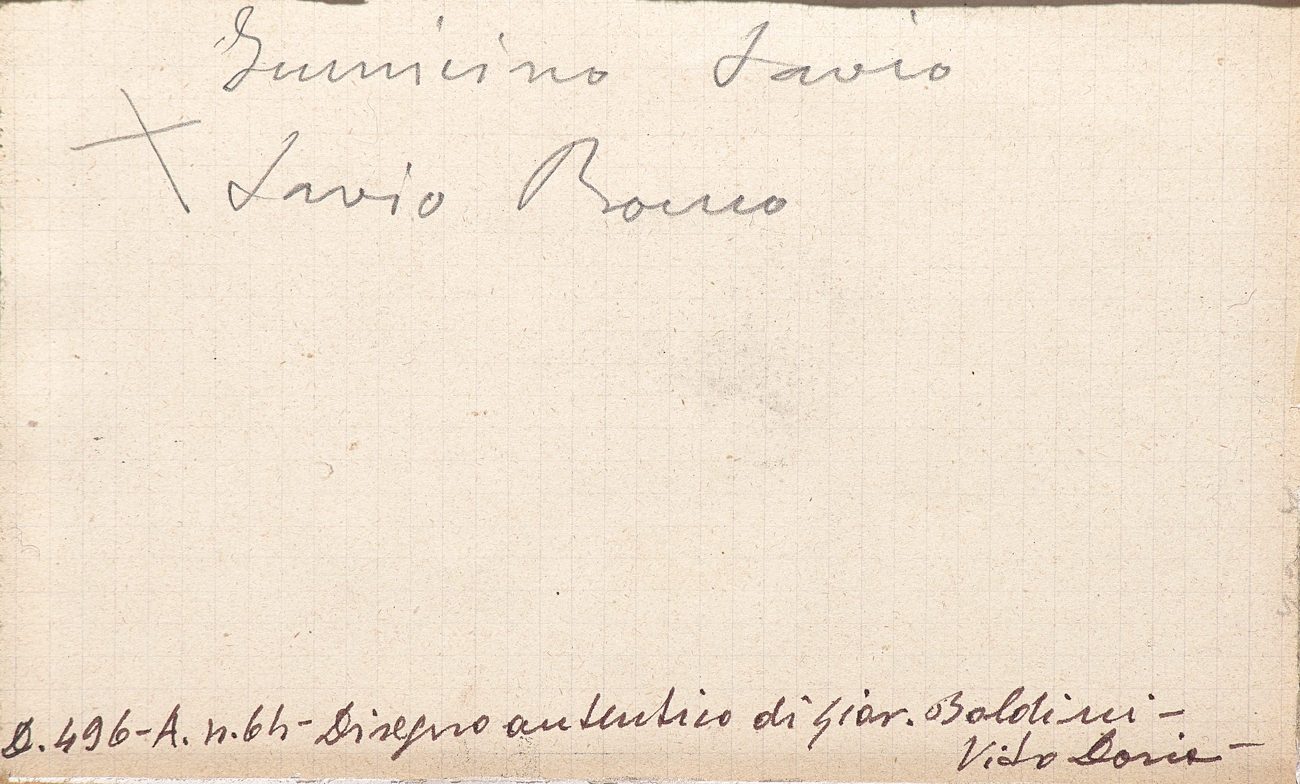 Savio
Savio
D. 496-A. n. 64- Disegno autentico di Giov. Boldini -
Vito Doria -